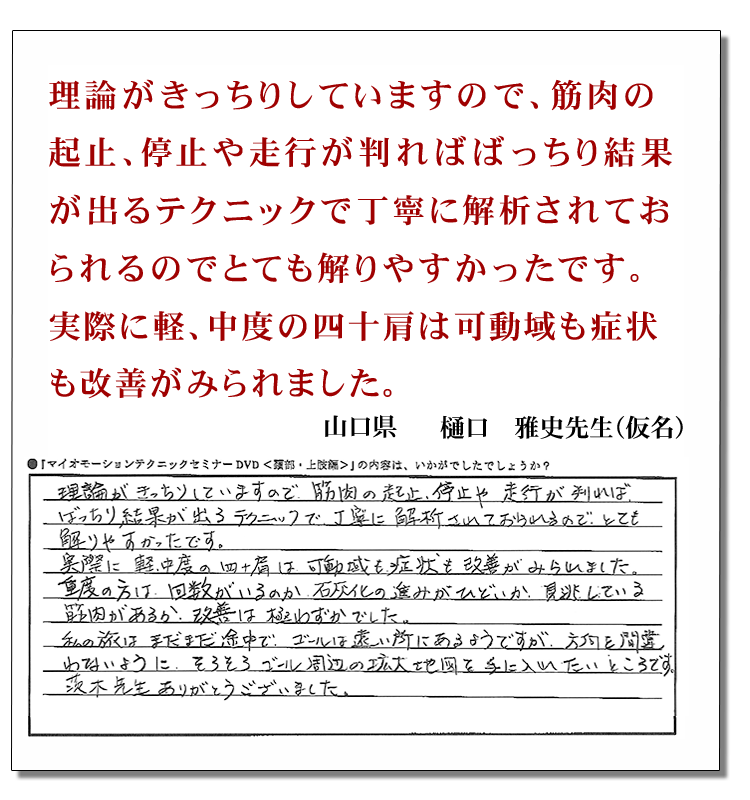 理論がきっちりしていますので、筋肉の
起止、停止や走行が判ればばっちり結果
が出るテクニックで丁寧に解析されてお
られるのでとても解りやすかったです。
実際に軽、中度の四十肩は可動域も症状
も改善がみられました。
山口県　樋口　雅史先生(仮名)
●『マイオモーションテクニックセミナーDVD＜頚部・上肢編＞』の内容は、いかがでしたでしょうか？
理論がきっちりしていますので、筋肉の起止、停止や 走行が判れば、
ばっちり結果が出るテクニックで、丁寧に解析されておられるので、とても
解りやすかったです。
実際に軽、中度の四十肩は可動域も症状も改善がみられました。
重度の方は、回数がいるのか、石灰化の進みがひどいか、見逃している
筋肉があるか、改善は極わずかでした。
私の旅はまだまだ途中で、ゴールは遠い所にあるようですが、方向を間違
わないように、そろそろゴール周辺の拡大地図を手に入れたいところです。
茨木先生ありがとうございました。